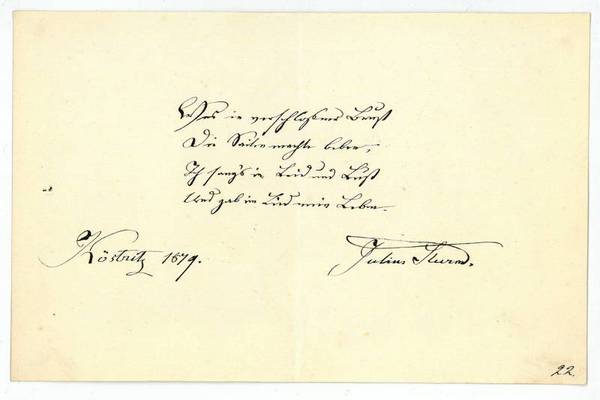 Was in verschloßner Brust
Die Saiten machte beben,
Ich sang's in Leid und Lust
Und gab im Lied mein Leben.
Köstritz 1879.
Julius Sturm.
22.